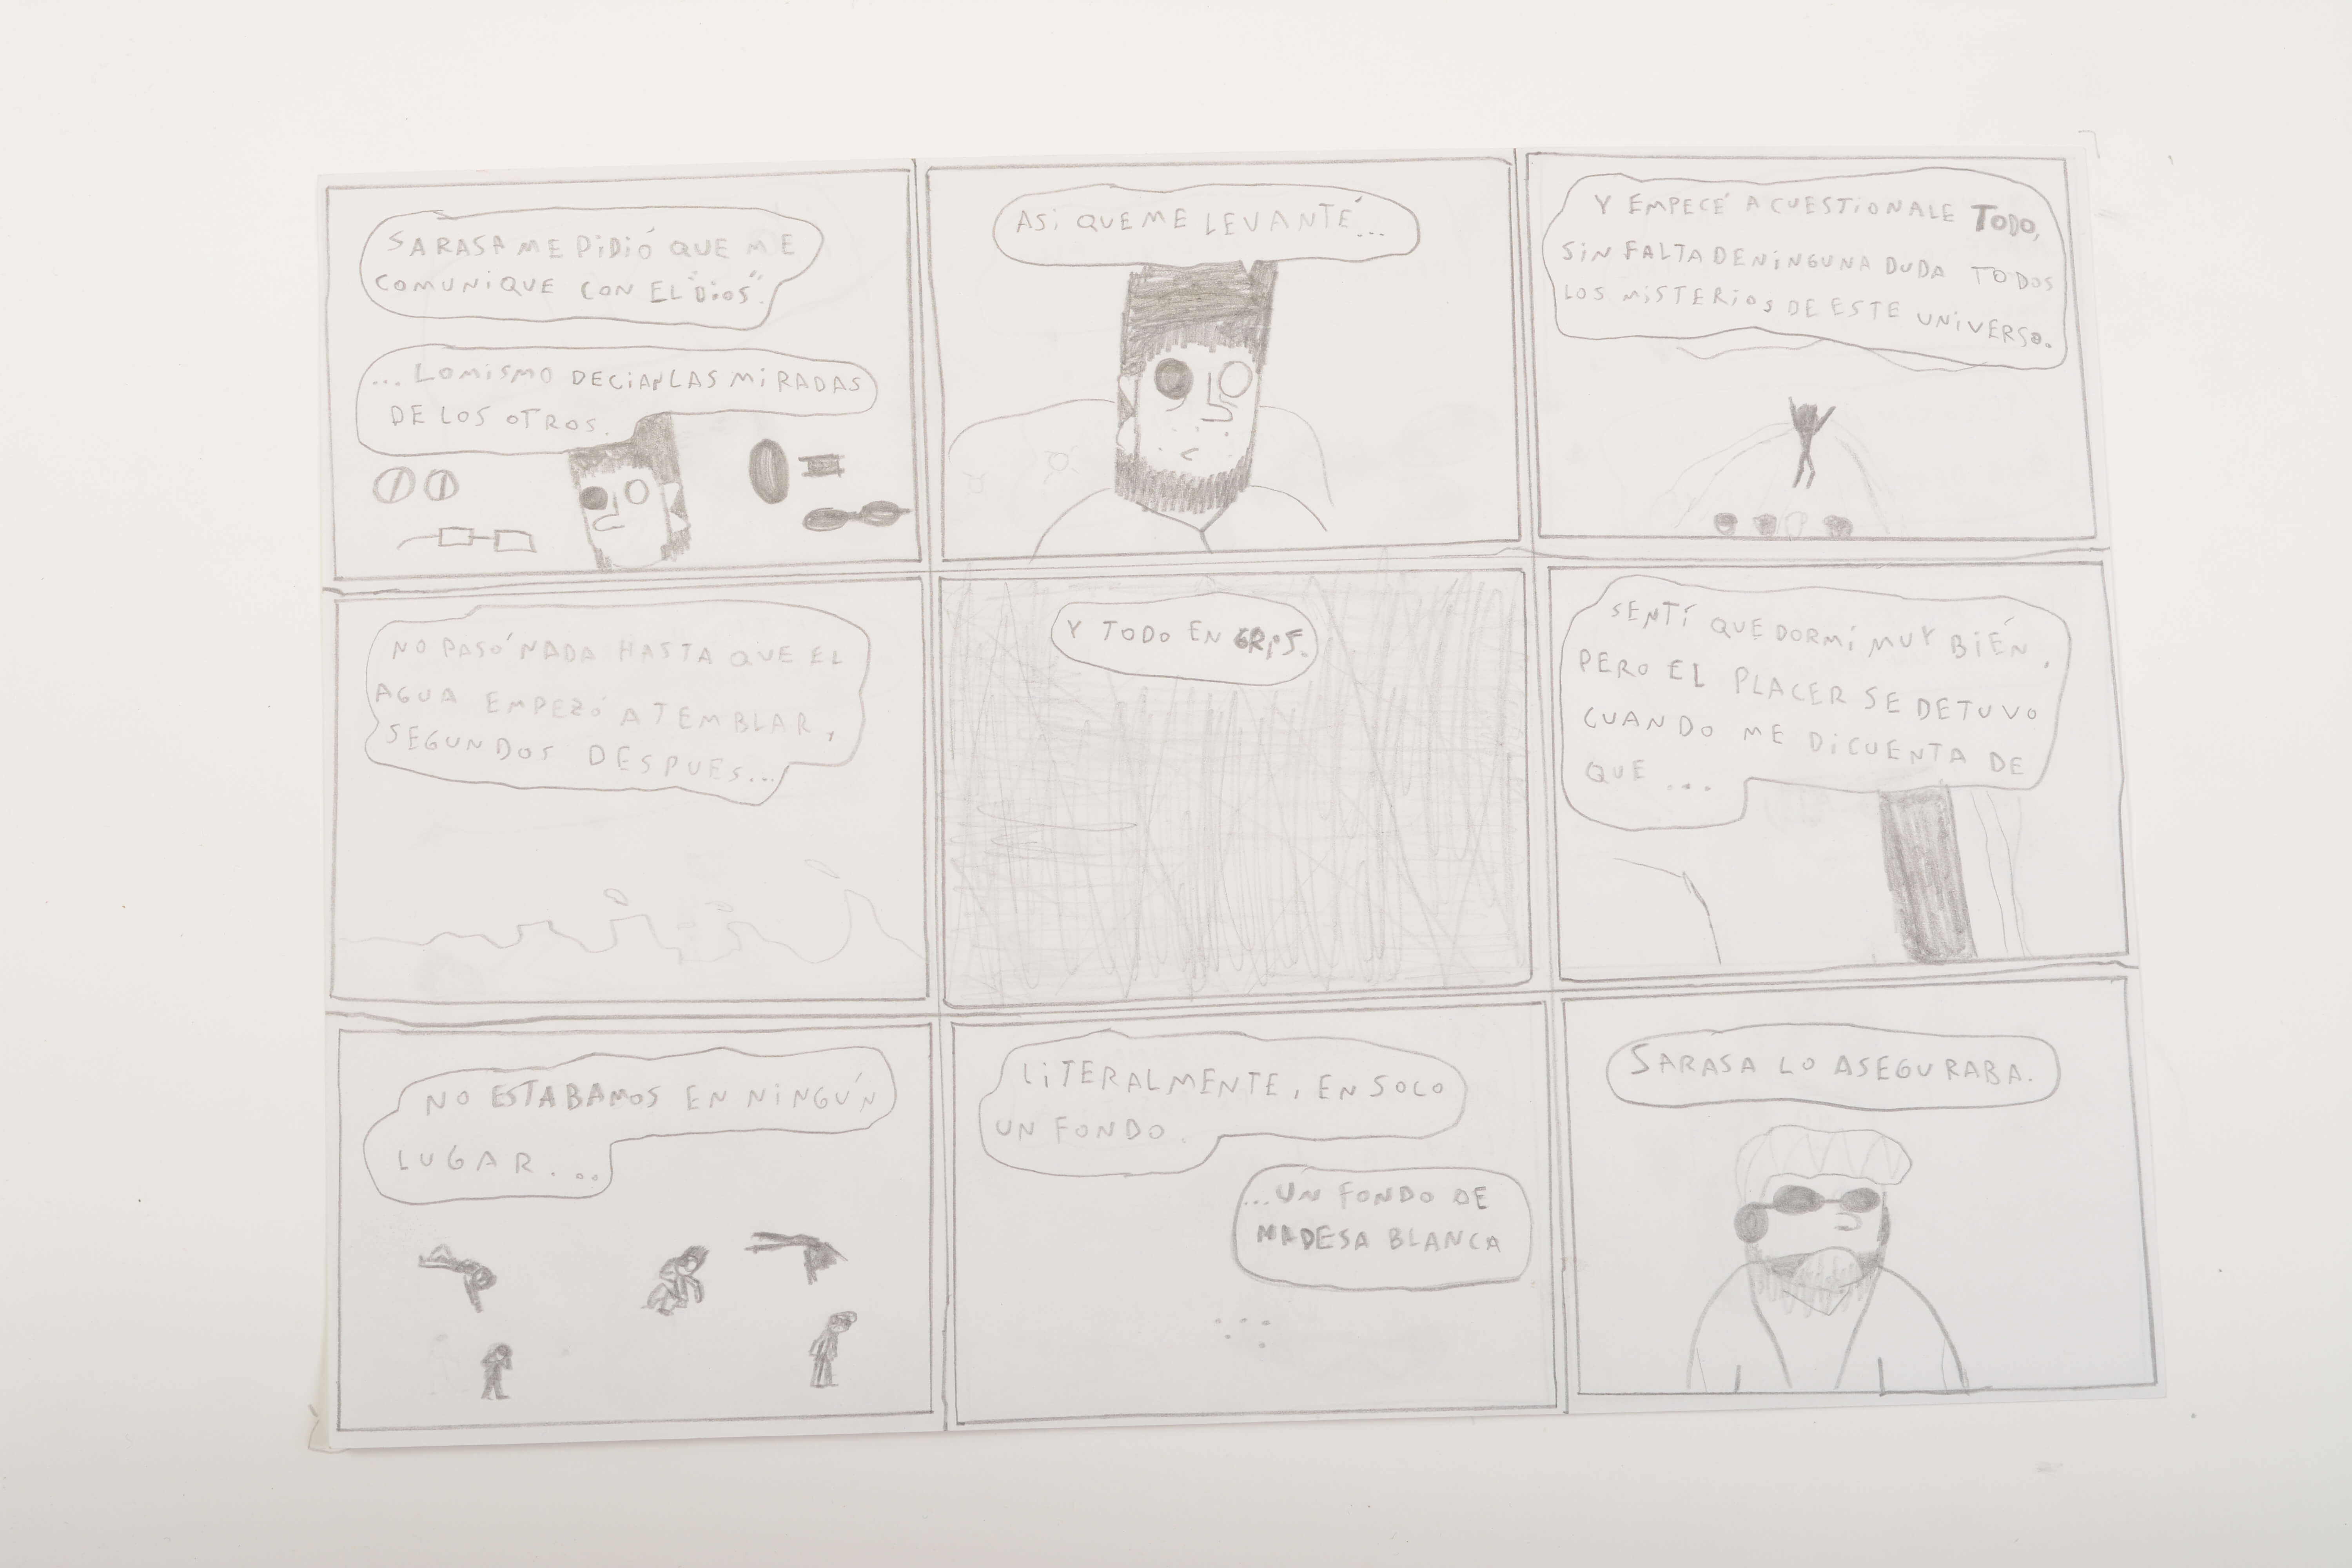 SARASA ME PIDIÓ QUE ME
COMUNIQUE CON EL "DIOS".
... LO MISMO DECIAN LAS MIRADAS
DE LOS OTROS.
ASI QUE ME LEVANTÉ...
Y EMPECÉ A CUESTIONALE TODO,
SIN FALTA DE NINGUNA DUDA TODOS
LOS MISTERIOS DE ESTE UNIVERSO.
NO PASÓ NADA HASTA QUE EL
AGUA EMPEZÓ A TEMBLAR,
SEGUNDOS DESPUES...
Y TODO EN GRIS.
SENTÍ QUE DORMI MUY BIÉN,
PERO EL PLACER SE DETUVO
CUANDO ME DI CUENTA DE
QUE ...
NO ESTABAMOS EN NINGÚN
LUGAR...
LITERALMENTE, EN SOLO
UN FONDO.
...UN FONDO DE
MADESA BLANCA
SARASA LO ASEGURABA.